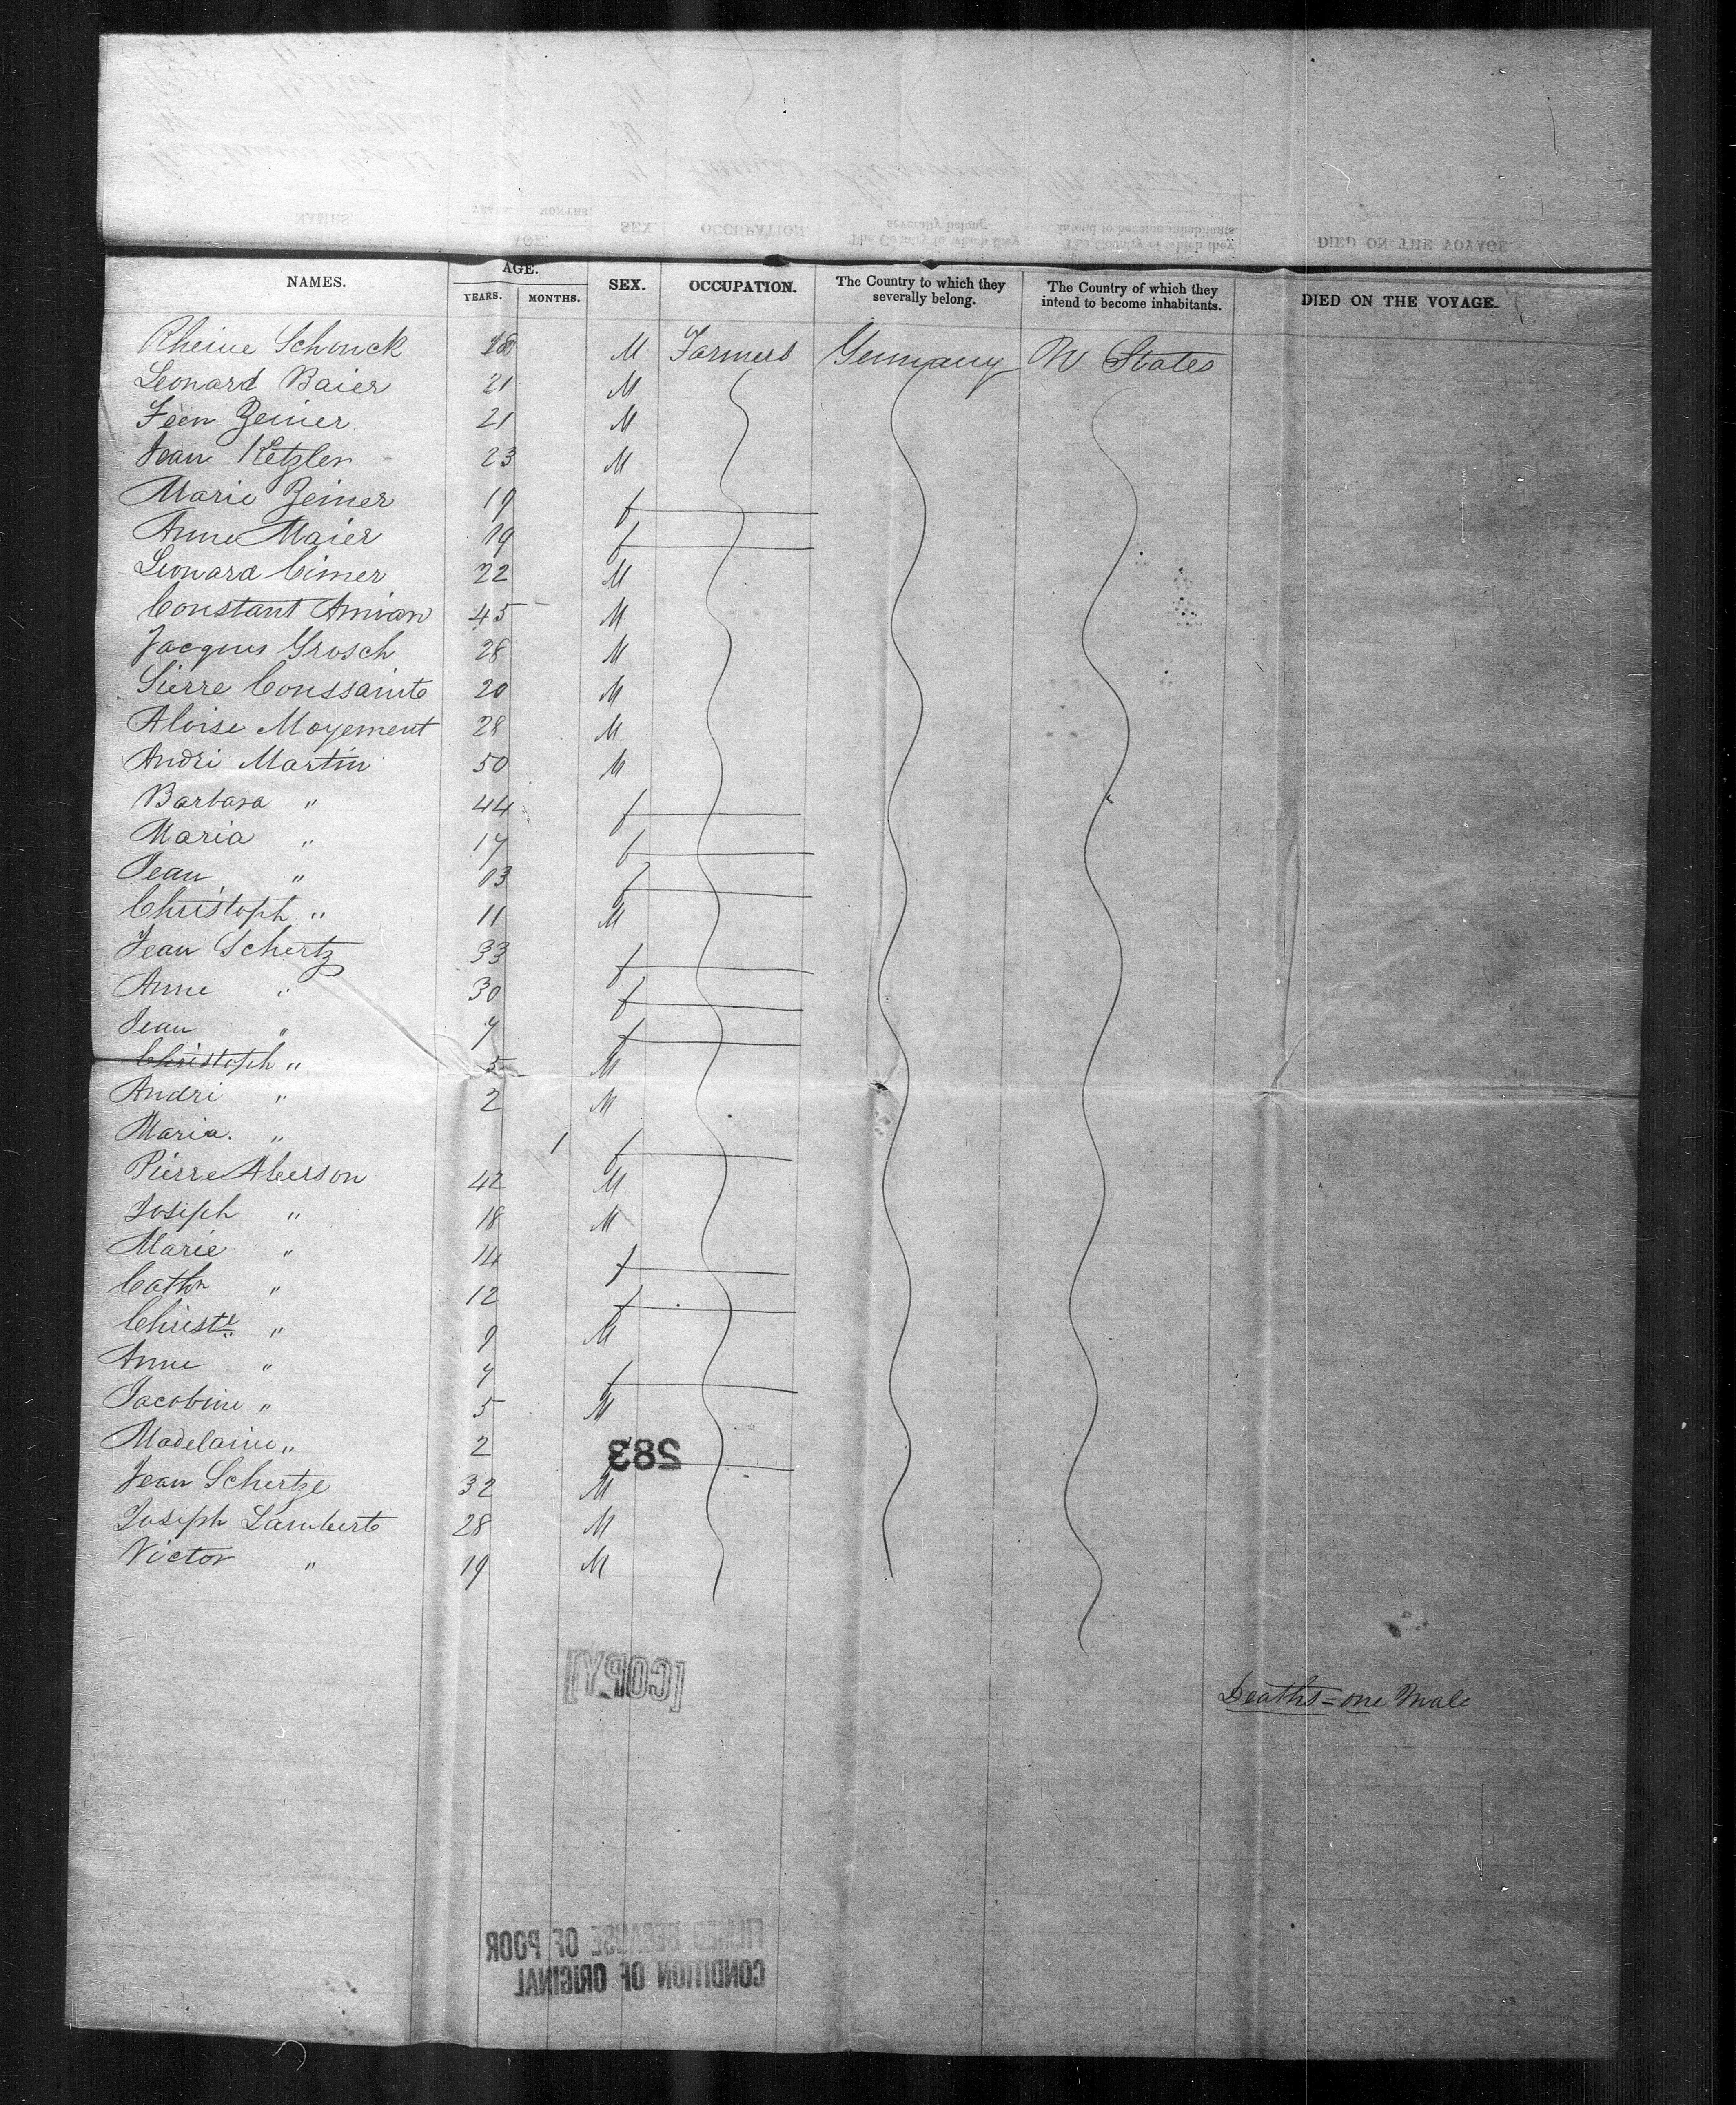 NAMES. AGE. SEX. OCCUPATION. The Country to which they severally belong. The Country of which they intend to become inhabitants. DIED ON THE VOYAGE.
YEARS. MONTHS.
Rheine Schonck M Farmers Germany States
Leonard Baier 21 M
Feen Zeiner 21 M
Jean Ketzler 23 M
Marie Zeiner 19 f
Anne Maier 19 f
Leonard Cimer 22 M
Constant Amian 45 M
Jacques Grosch 28 M
Pierre Coussainte 20 M
Aloise Moyement 28 M
Andri Martin 50 M
Barbara " 44 f
Maria " 17 f
Jean " 13 f
Christoph " 11 M
Jean Schertz 33 f
Anne " 30 f
Jean " 7 f
Christoph " 5 M
Andri " 2 M
Maria. " 1 f
Pierre Aberson 42 M
Joseph " 18 M
Marie " 14 f
Cathn " 12 f
Christr " 9 M
Anne " 7 f
Jacobine " 5 M
Madelaine " 2
283
Jean Schertze 32 M
Joseph Lamberte 28 M
Victor " 19 M
[COPY]
Deaths = one Male
FILMED BECAUSE OF POOR
CONDITION OF ORIGINAL